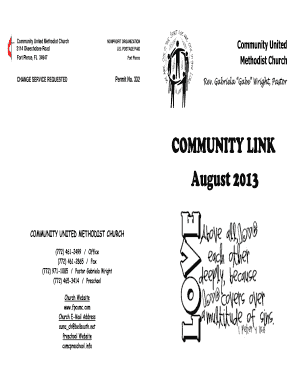 Community United Methodist Church
3114 Okeechobee Road
Fort Pierce, FL 34947
CHANGE SERVICE REQUESTED
NONPROFIT ORGANIZATION
U.S. POSTAGE PAID
Fort Pierce
Permit No. 332
COMMUNITY UNITED METHODIST CHURCH
(772) 461-2499 / Office
(772) 461-2865 / Fax
(772) 971-1085 / Pastor Gabriela Wright
(772) 465-3414 / Preschool
Church Website
www.fpcumc.com
Church E-Mail Address
Preschool Website
cumcpreschool.info
Community United
Methodist Church
Rev. Gabriela "Gabe" Wright, Pastor
COMMUNITY LINK
August 2013
LOVE
Above all, love
each other
deeply, because
love covers over
a multitude of sins.
1 Peter 4:8